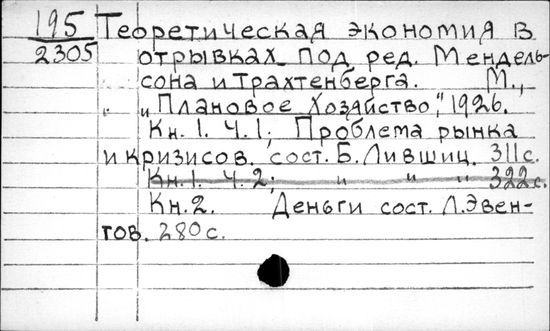 195 Теоретическая экономия в
2305 отрывках. Под ред. Мендель-
сона и Трахтенберга. М.,
"Плановое Хозяйство", 1926.
Кн. 1. Ч. 1; Проблема рынка
и кризисов. сост. Б. Лившиц. 311 с.
Кн. 1. Ч. 2; " " " 322 с.
Кн. 2. Деньги сост. Л. Эвен-
тов. 280 с.